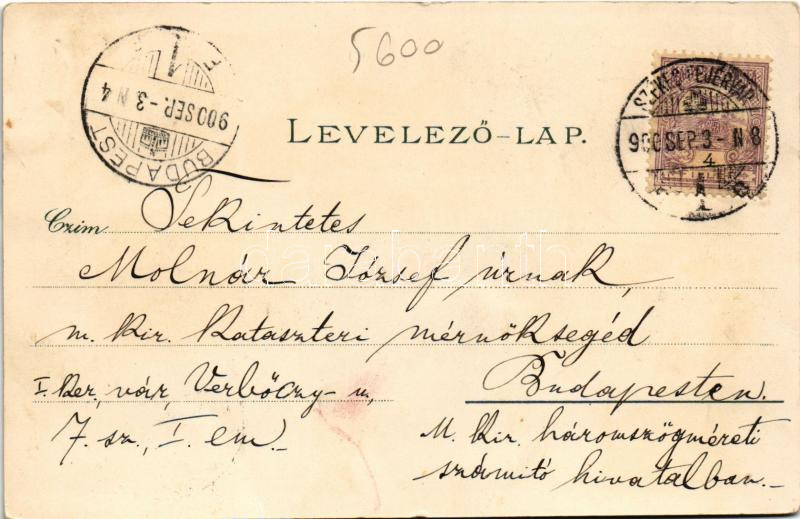 5600
BUDAPEST
900 SEP. -3. N 4
1
SZÉKESFEJÉRVÁR
900 SEP 3 - N 8
4
LEVELEZŐ-LAP.
Czím Tekintetes
Molnár József úrnak,
m. kir. kataszteri mérnöksegéd
I. ker., vár, Verbőczy-u., Budapesten.
7. sz., I. em.-
M. kir. háromszögméreti
számitó hivatalban.-
darabanth